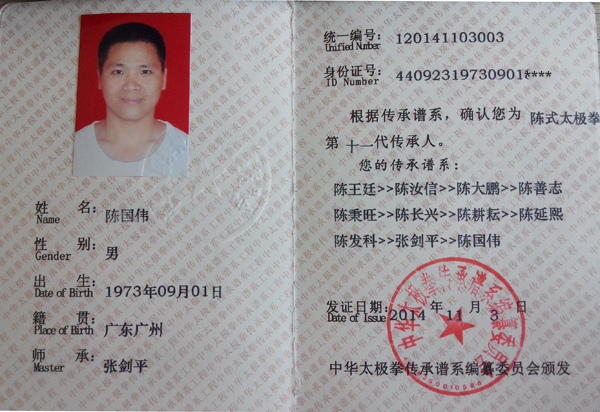 姓 名: 陈国伟
Name
性 别: 男
Gender
出 生: 1973年09月01日
Date of Birth
籍 贯: 广东广州
Place of Birth
师 承: 张剑平
Master
统一编号: 120141103003
Unified Number
身份证号: 44092319730901****
ID Number
根据传承谱系，确认您为 陈式太极拳
第 十一 代传承人。
您的传承谱系：
陈王廷>>陈汝信>>陈大鹏>>陈善志
陈秉旺>>陈长兴>>陈耕耘>>陈延熙
陈发科>>张剑平>>陈国伟
发证日期: 2014 年 11 月 3 日
Date of Issue
中华太极拳传承谱系编纂委员会
中华太极拳传承谱系编纂委员会颁发